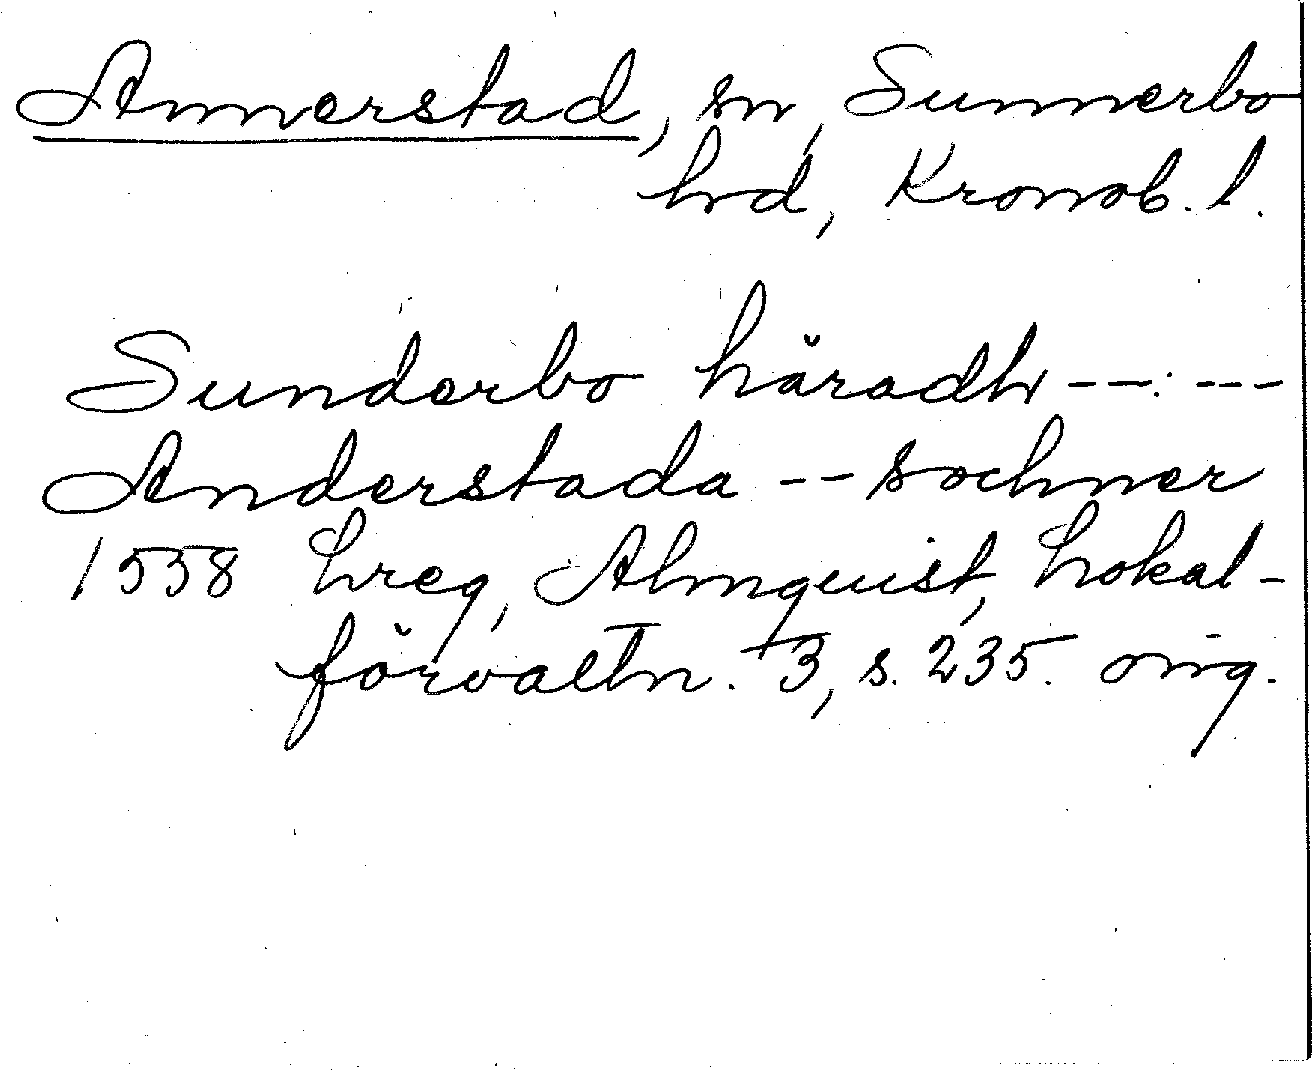 Annerstad, sn, Sunnerbo
hd, Kronob. l.
Sunderbo häradh --:---
Anderstada -- sochner
1558 Lreg, Almquist, Lokal-
förvaltn. 3, s. 235. orig.